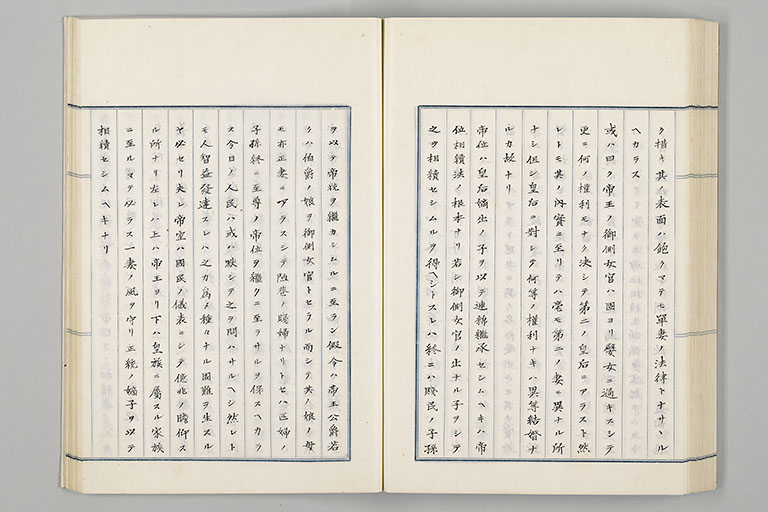 ク措キ其ノ表面ハ飽クマテモ単妻ノ法律トナサヽル
ヘカラス
或ハ曰ク帝王ノ御側女官ハ固ヨリ嬖女ニ過キスシテ
更ニ何ノ権利モナク決シテ第二ノ皇后ニアラスト然
レトモ其ノ内實ニ至リテハ毫モ第二ノ妻ニ異ナル所
ナシ但シ皇后ニ對シテ何等ノ權利ナキハ異等結婚ナ
ルカ故ナリ
帝位ハ皇后嫡出ノ子ヲ以テ連綿繼承セシムヘキハ帝
位相續法ノ根本ナリ若シ御側女官ノ出ナル子ヲシテ
之ヲ相續セシムルヲ得ヘシトスレハ終ニハ賤民ノ子孫
ヲ以テ帝統ヲ繼カシムルニ至ラン假令ハ帝王公爵若
クハ伯爵ノ娘ヲ御側女官トセラル而シテ其ノ娘ノ母
モ亦正妻ニアラスシテ陋巷ノ賤婦ナリトセハ匹婦ノ
子孫終ニ至尊ノ帝位ヲ繼クニ至ラサルヲ保スヘカラ
ス今日ノ人民ハ或ハ黙シテ之ヲ問ハサルヘシ然レト
モ人智益發達スレハ之カ為メ種々ナル困難ヲ生スル
ヤ必セリ夫レ帝室ハ國民ノ儀表ニシテ億兆ノ瞻仰ス
ル所ナリ左レハ上ハ帝王ヨリ下ハ皇族ニ屬スル家族
ニ至ルマテ必ラス一妻ノ風ヲ守リ正統ノ嫡子ヲ以テ
相續セシムヘキナリ